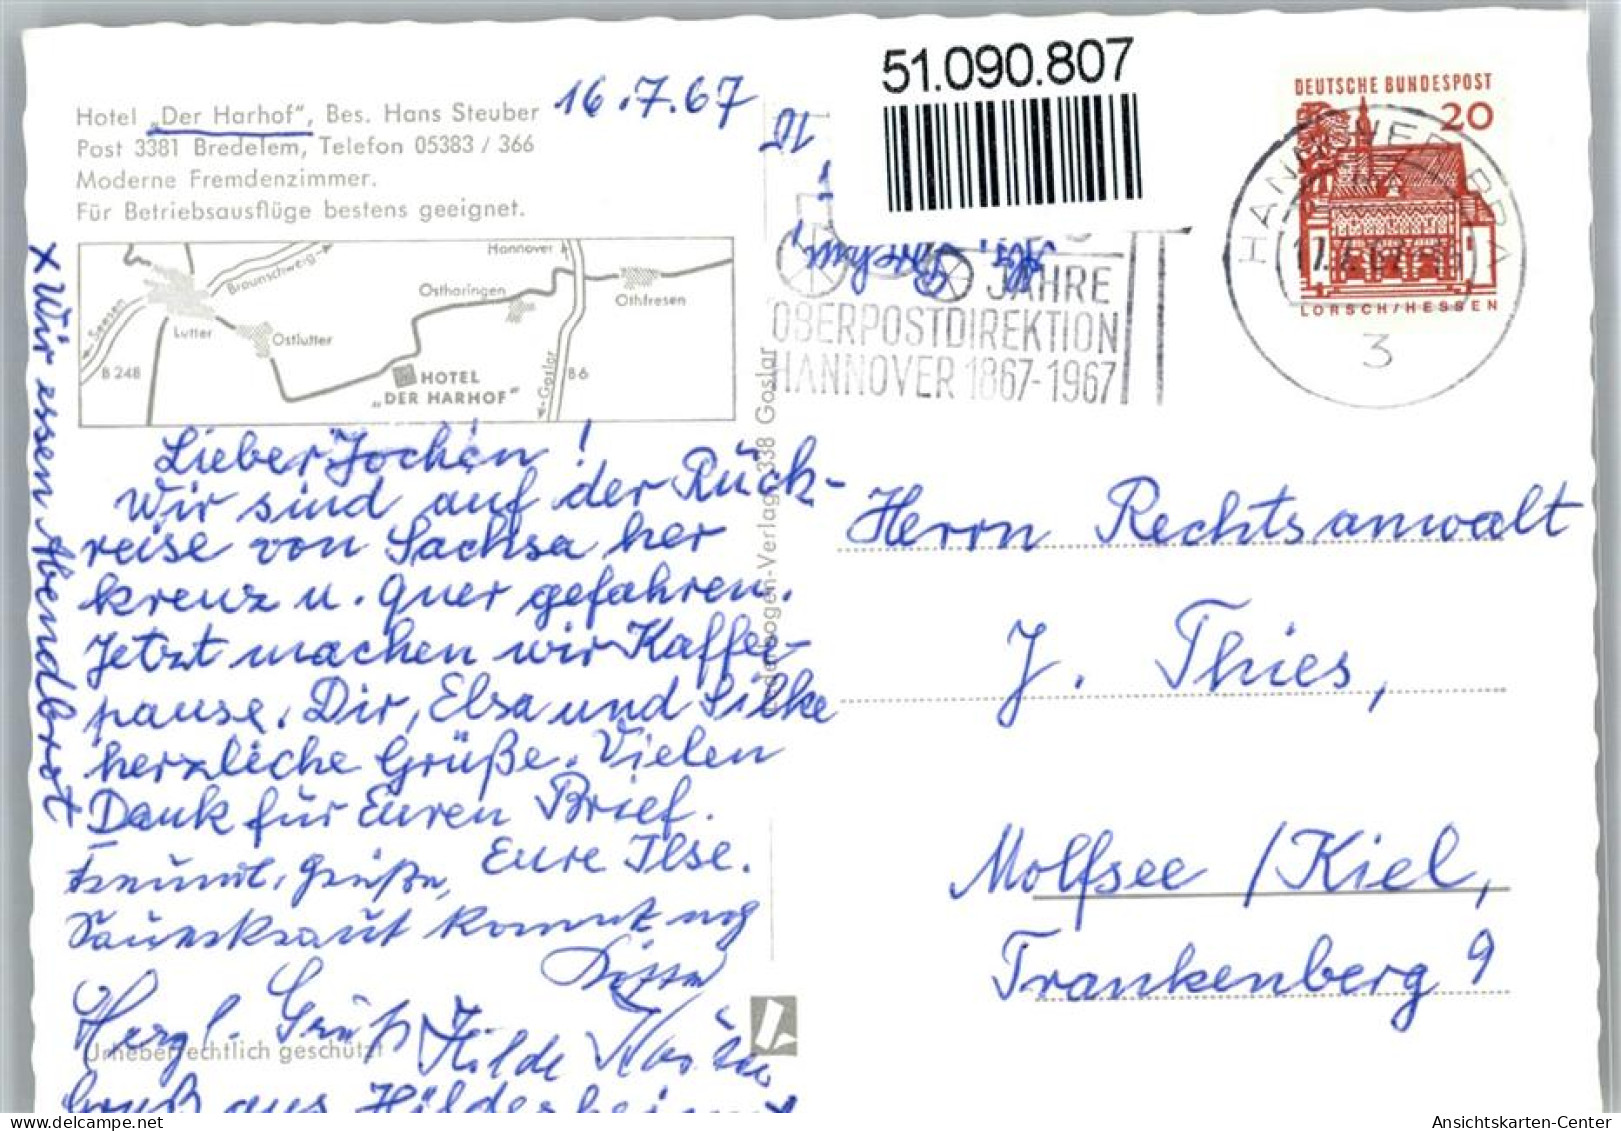 Hotel „Der Harhof“, Bes. Hans Steuber
Post 3381 Bredelem, Telefon 05383 / 366
Moderne Fremdenzimmer.
Für Betriebsausflüge bestens geeignet.
16.7.67
51.090.807
DEUTSCHE BUNDESPOST
20
LORSCH/HESSEN
3
JAHRE
OBERPOSTDIREKTION
HANNOVER 1867-1967
Hannover
Braunschweig
Seesen
Lutter
Ostlutter
Ostharingen
Othfresen
B 248
B6
Goslar
HOTEL
„DER HARHOF“
Lieber Jochen!
Wir sind auf der Rück-
reise von Sachsa her
kreuz u. quer gefahren.
Jetzt machen wir Kaffee-
pause. Dir, Elsa und Silke
herzliche Grüße. Vielen
Dank für Euren Brief.
Eure Ilse.
Freundl. Grüße,
Sauerkraut kommt noch
Herzl. Grüß Hilde
Gruß aus Hildesheim
x Wir essen Abendbrot
Urheberrechtlich geschützt
-Verlag 338 Goslar
Herrn Rechtsanwalt
J. Thies,
Molfsee / Kiel,
Frankenberg 9
Ansichtskarten-Center